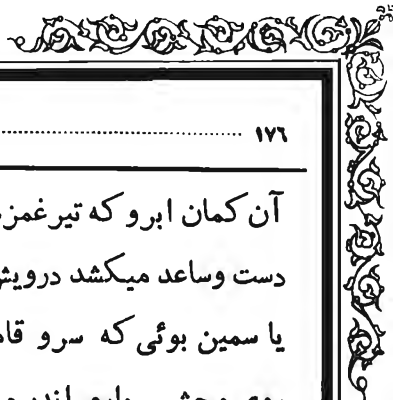 ۱۷٦
آن کمان ابرو که تیر غمز
دست وساعد میکشد درویش
یا سمین بوئی که سرو قا